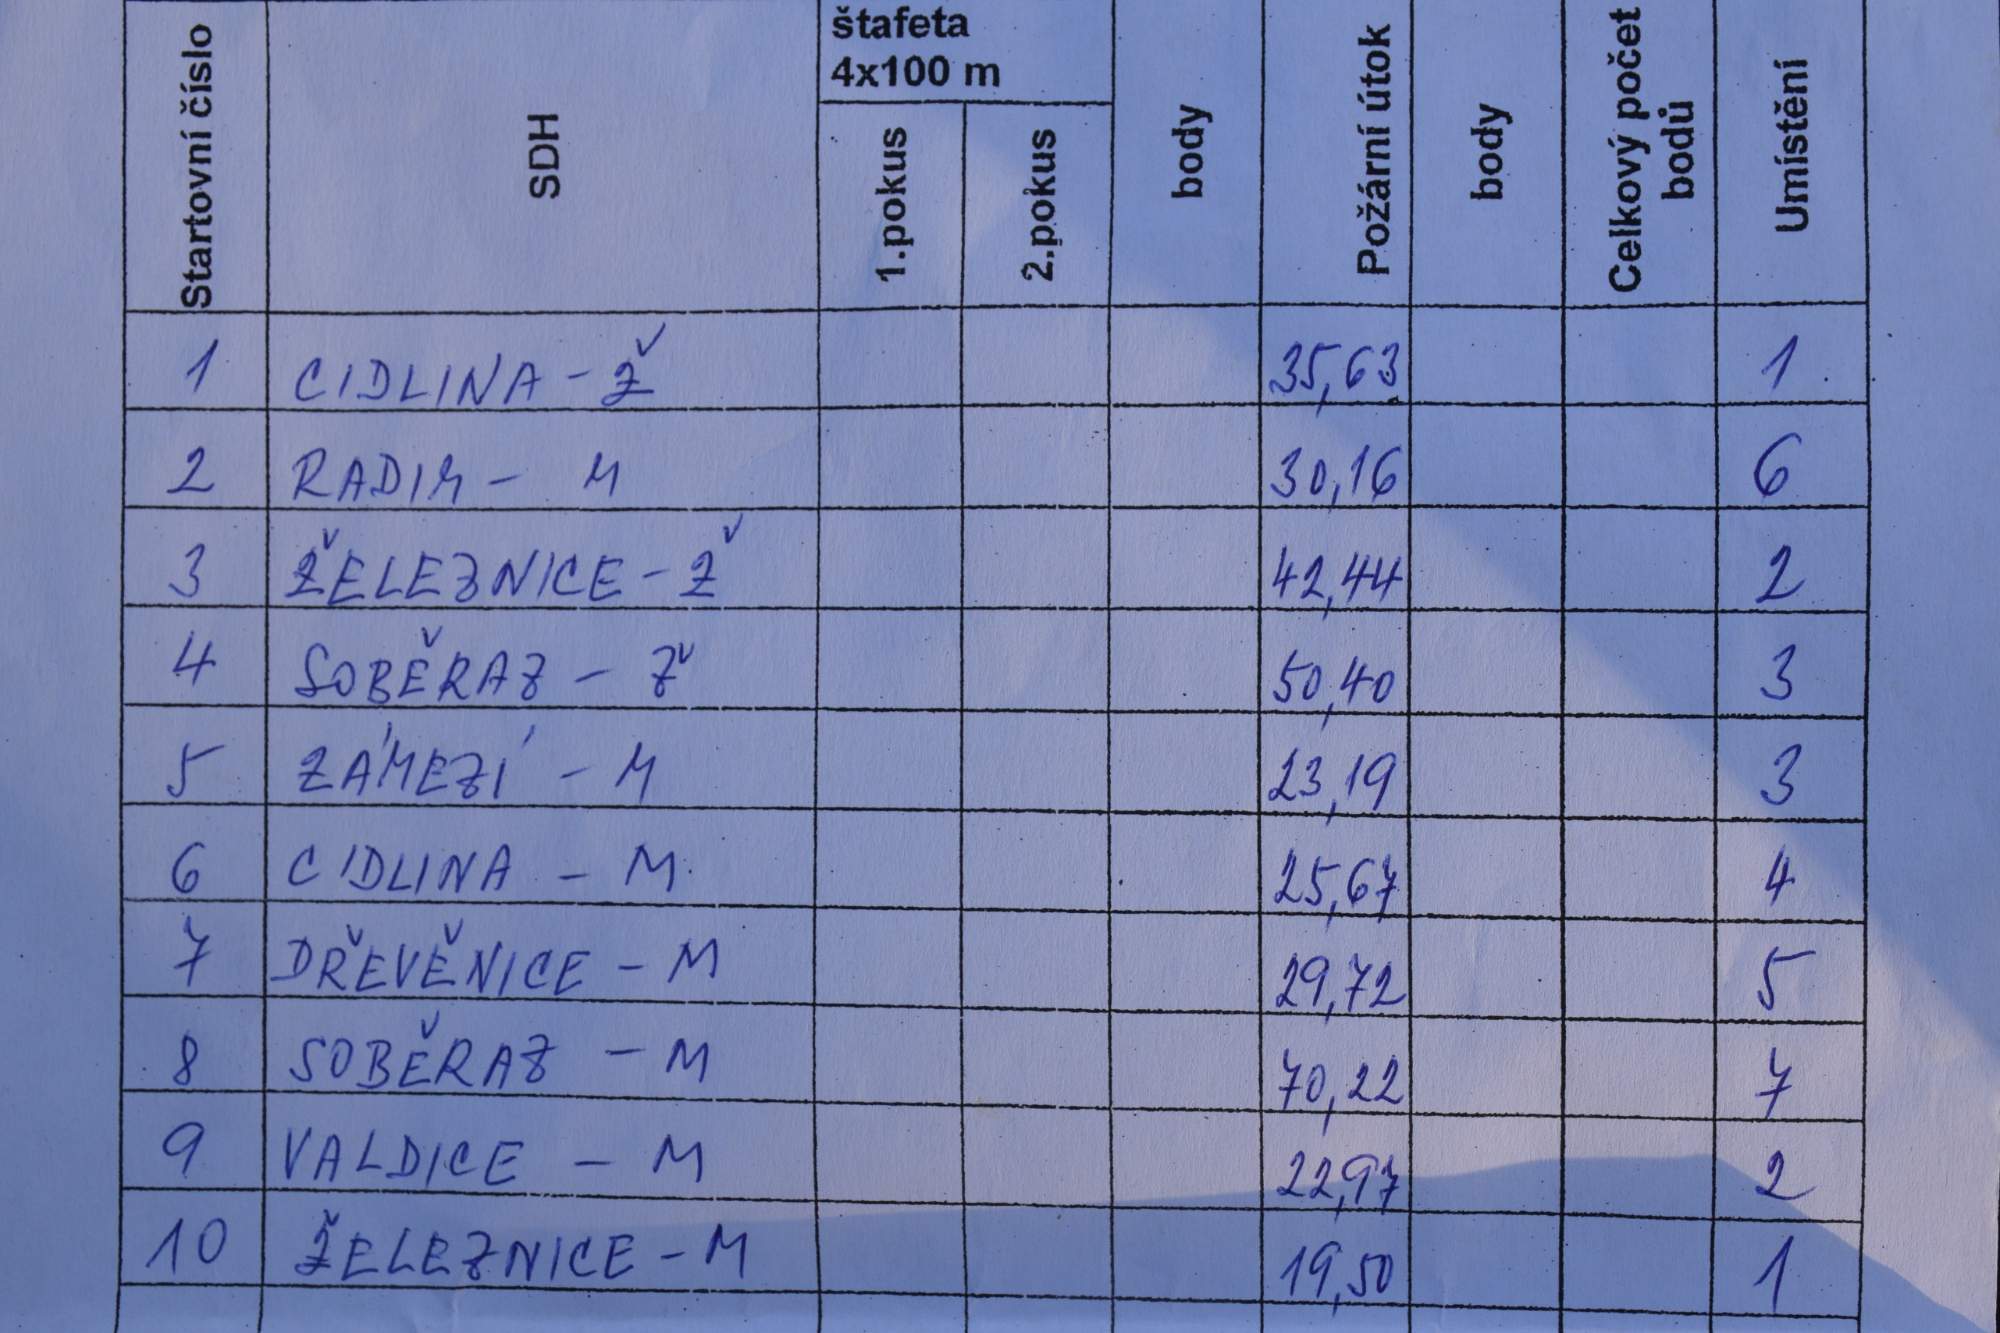 Startovní číslo SDH štafeta 4x100 m 1.pokus 2.pokus body Požární útok body Celkový počet bodů Umístění
1 CIDLINA - Ž 35,63 1
2 RADIM - M 30,16 6
3 ŽELEZNICE - Ž 42,44 2
4 SOBĚRAZ - Ž 50,40 3
5 ZÁMEZÍ - M 23,19 3
6 CIDLINA - M 25,67 4
7 DŘEVĚNICE - M 29,72 5
8 SOBĚRAZ - M 70,22 7
9 VALDICE - M 22,97 2
10 ŽELEZNICE - M 19,50 1